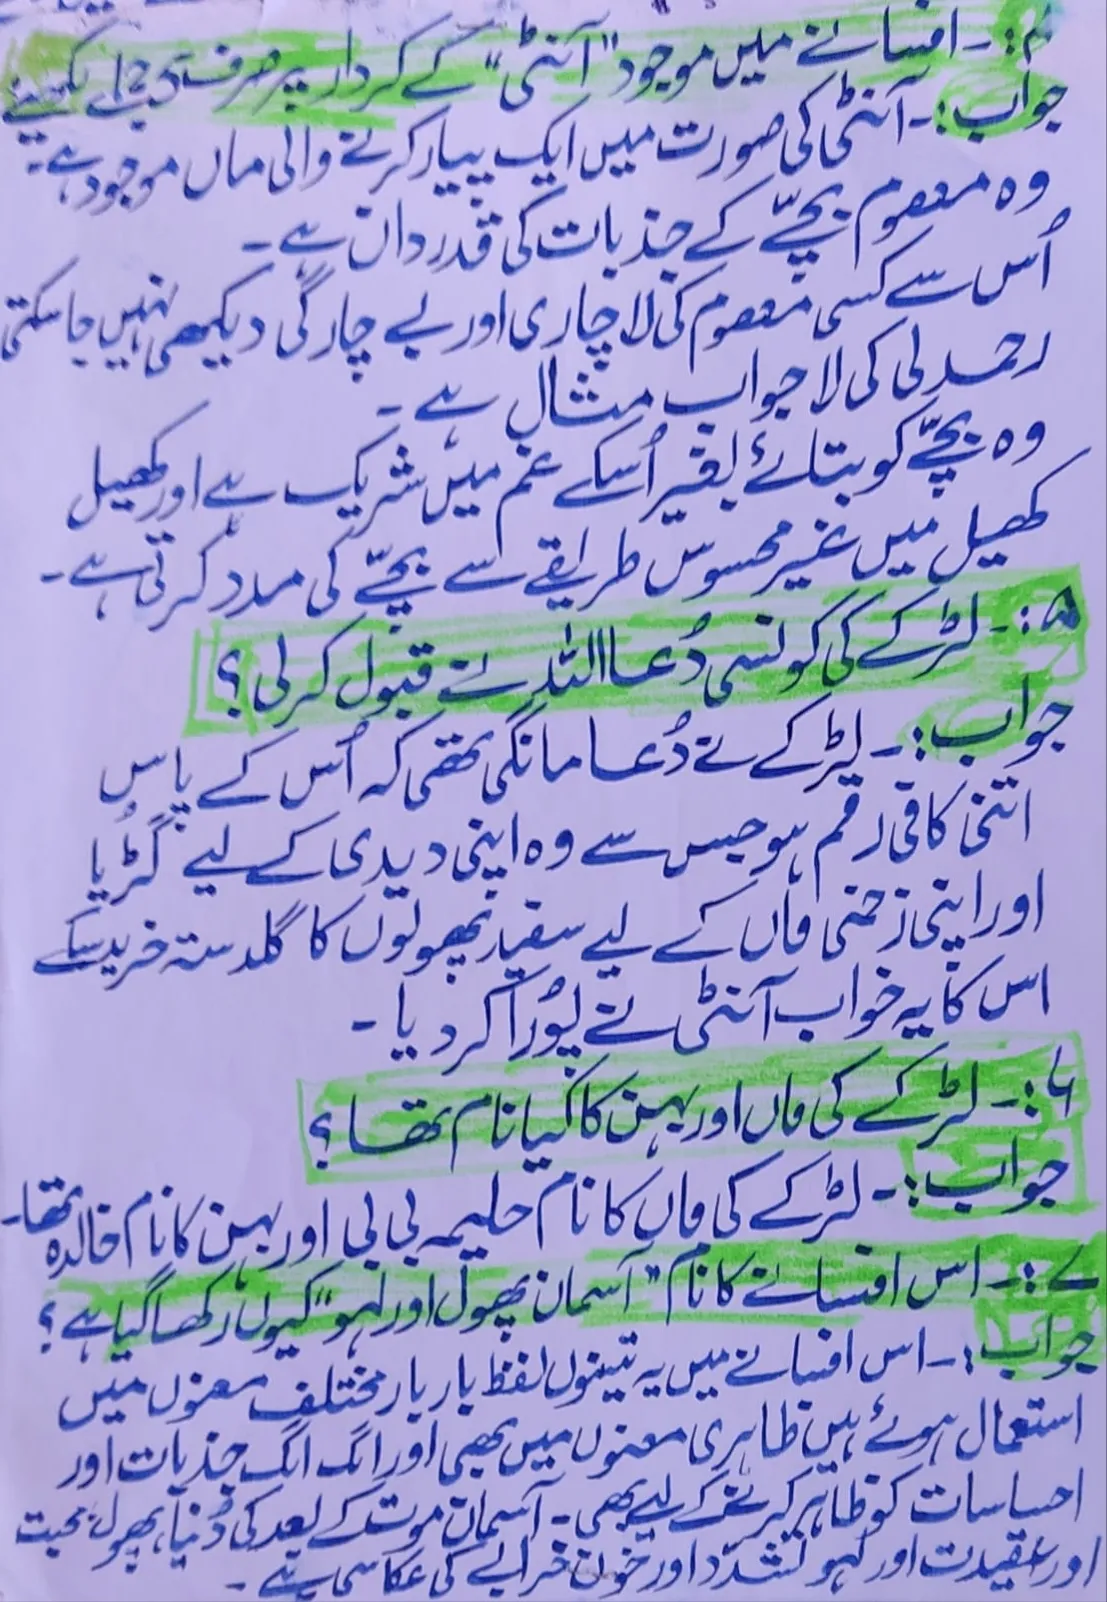 ۴:۔ افسانے میں موجود "آنٹی" کے کردار پر صرف 5 جملے لکھیئے
جواب:۔ آنٹی کی صورت میں ایک پیار کرنے والی ماں موجود ہے۔
وہ معصوم بچّے کے جذبات کی قدردان ہے۔
اُس سے کسی معصوم کی لاچاری اور بے چارگی دیکھی نہیں جاسکتی
رحمدلی کی لاجواب مثال ہے۔
وہ بچّے کو بتائے بغیر اُسکے غم میں شریک ہے اور کھیل
کھیل میں غیر محسوس طریقے سے بچّے کی مدد کرتی ہے۔
۵:۔ لڑکے کی کونسی دُعا اللہ نے قبول کرلی؟
جواب:۔ لڑکے نے دُعا مانگی تھی کہ اُس کے پاس
اتنی کافی رقم ہو جس سے وہ اپنی دیدی کے لیے گُڑیا
اور اپنی زخمی ماں کے لیے سفید پھولوں کا گلدستہ خرید سکے
اس کا یہ خواب آنٹی نے پُورا کردیا۔
۶:۔ لڑکے کی ماں اور بہن کا کیا نام تھا؟
جواب:۔ لڑکے کی ماں کا نام حلیمہ بی بی اور بہن کا نام خالدہ تھا۔
۷:۔ اس افسانے کا نام "آسمان پھول اور لہو" کیوں رکھا گیا ہے؟
جواب:۔ اس افسانے میں یہ تینوں لفظ بار بار مختلف معنوں میں
استعمال ہوئے ہیں ظاہری معنوں میں بھی اور الگ الگ جذبات اور
احساسات کو ظاہر کرنے کے لیے بھی۔ آسمان موت کے بعد کی دُنیا، پھول محبت
اور عقیدت اور لہو تشدّد اور خون خرابے کی عکاسی ہے۔